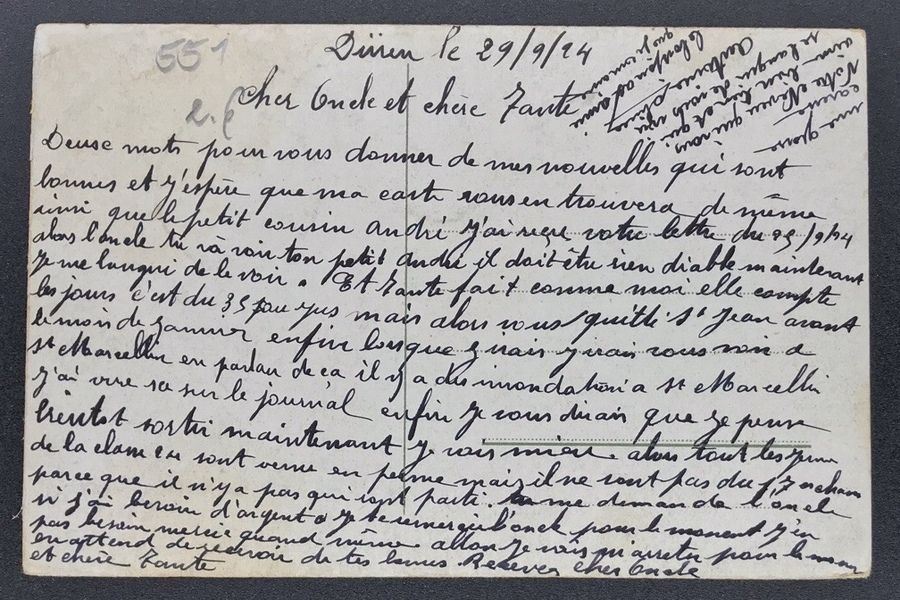 551
Düren le 29/9/24
2.
Cher Oncle et chère Tante
Deuse mots pour vous donner de mes nouvelles qui sont
bonnes et j'espère que ma carte vous en trouvera de même
ainsi que le petit cousin andré j'ai reçue votre lettre du 25/9/24
alors l'oncle tu va voir ton petit andré il doit être bien diable maintenant
je me langui de le voir. Et Tante fait comme moi elle compte
les jours c'est du 35 au jus mais alors vous quitté St Jean avant
le mois de janvier enfin lorsque j'irais j'irais vous voir a
St Marcellin en parlan de ca il y a des inondation a St Marcellin
j'ai vue sa sur le journal enfin je vous dirais que je pense
bientot sortir maintenant je vais mieu. alors tout les jeune
de la classe en sont venu en perme mais il ne sont pas du
parce que il n'y a pas qui sont parti. me demande l'oncle
si j'ai besoin d'argent je te remercie l'oncle pour le moment j'en
pas besoin mercie quand même allon je vais m'arreter pour le
en attend de recevoir de tes Recevez cher Oncle
et chère Tante
une gros
Votre Neveu qui vous
aime bien et qui
se langui de vous voir
Antoine
le bonjour
que je